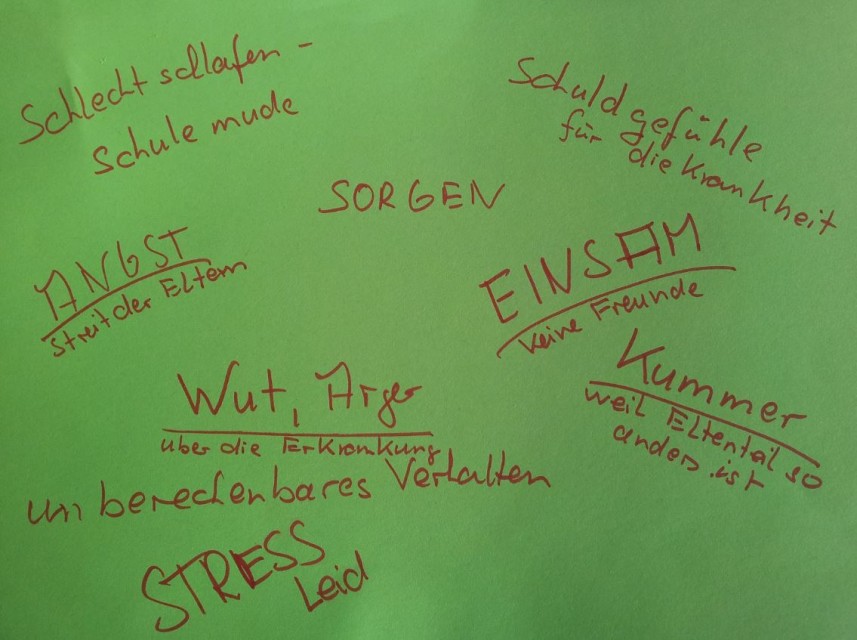 Schlecht schlafen -
Schule mude
Schuldgefühle
für die Krankheit
SORGEN
ANGST
Streit der Eltern
EINSAM
keine Freunde
Wut, Arger
über die Erkrankung
Kummer
weil Elternteil so
anders ist
unberechenbares Verhalten
STRESS
Leid